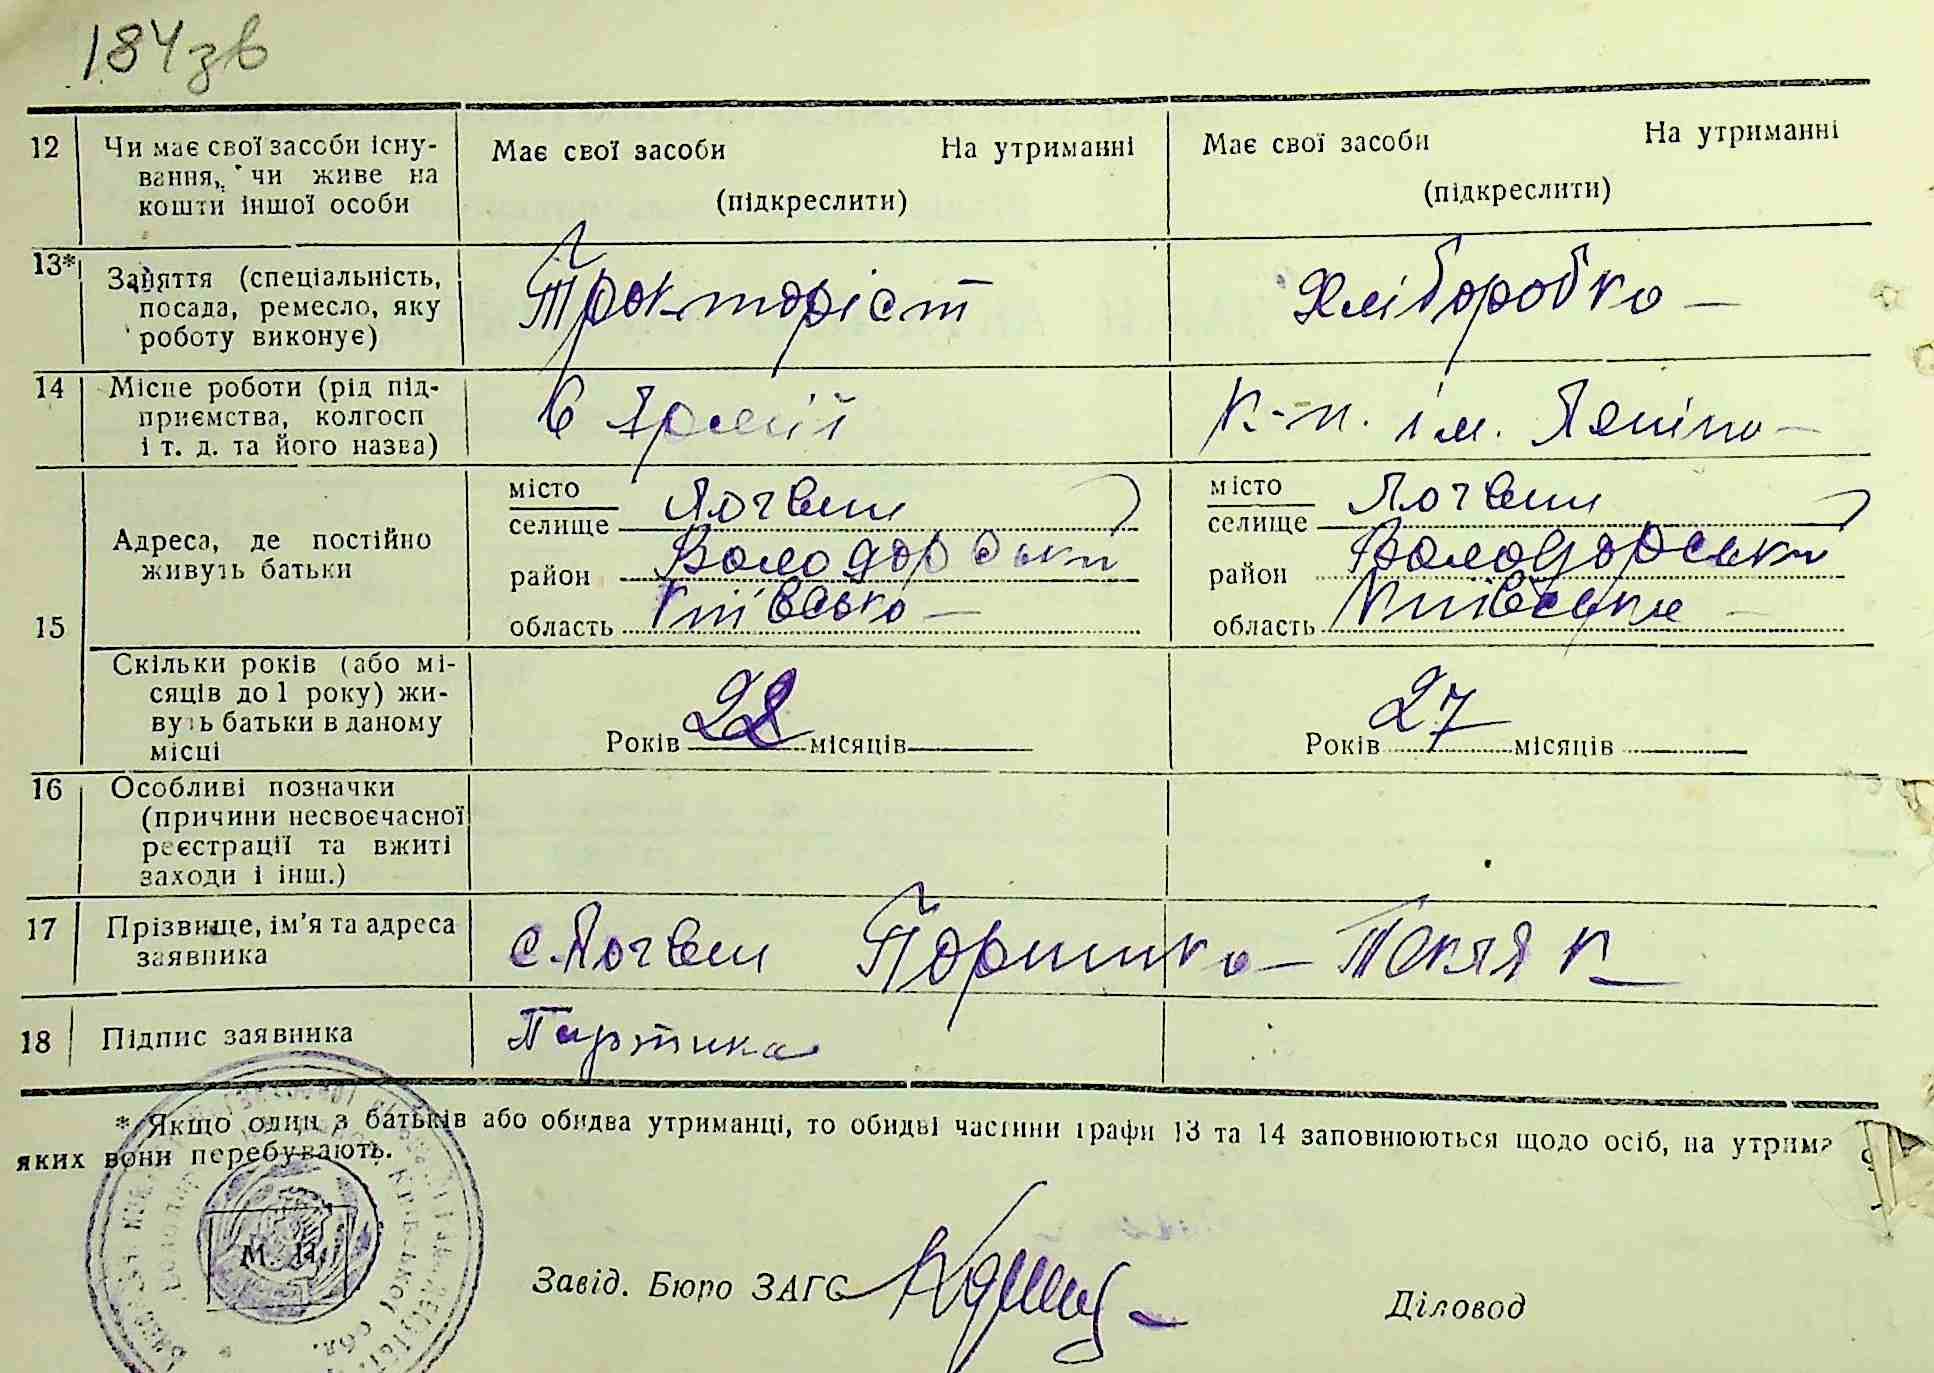 184зв
12 Чи має свої засоби існу-
вання, чи живе на
кошти іншої особи
Має свої засоби На утриманні
(підкреслити)
Має свої засоби На утриманні
(підкреслити)
13* Заняття (спеціальність,
посада, ремесло, яку
роботу виконує)
Тракторіст
Хліборобка
14 Місце роботи (рід під-
приємства, колгосп
і т. д. та його назва)
в Армії
к-п. ім. Леніна
15 Адреса, де постійно
живуть батьки
місто
селище Логвин
район Володарськи
область Київська
місто
селище Логвин
район Володарськи
область Київська
Скільки років (або мі-
сяців до 1 року) жи-
вуть батьки в даному
місці
Років 22 місяців
Років 27 місяців
16 Особливі позначки
(причини несвоєчасної
реєстрації та вжиті
заходи і інш.)
17 Прізвище, ім'я та адреса
заявника
с. Логвин Текля К
18 Підпис заявника
Партика
* Якщо один з батьків або обидва утриманці, то обидві частини графи 13 та 14 заповнюються щодо осіб, на утрим
яких вони перебувають.
М. П.
Завід. Бюро ЗАГС
Діловод